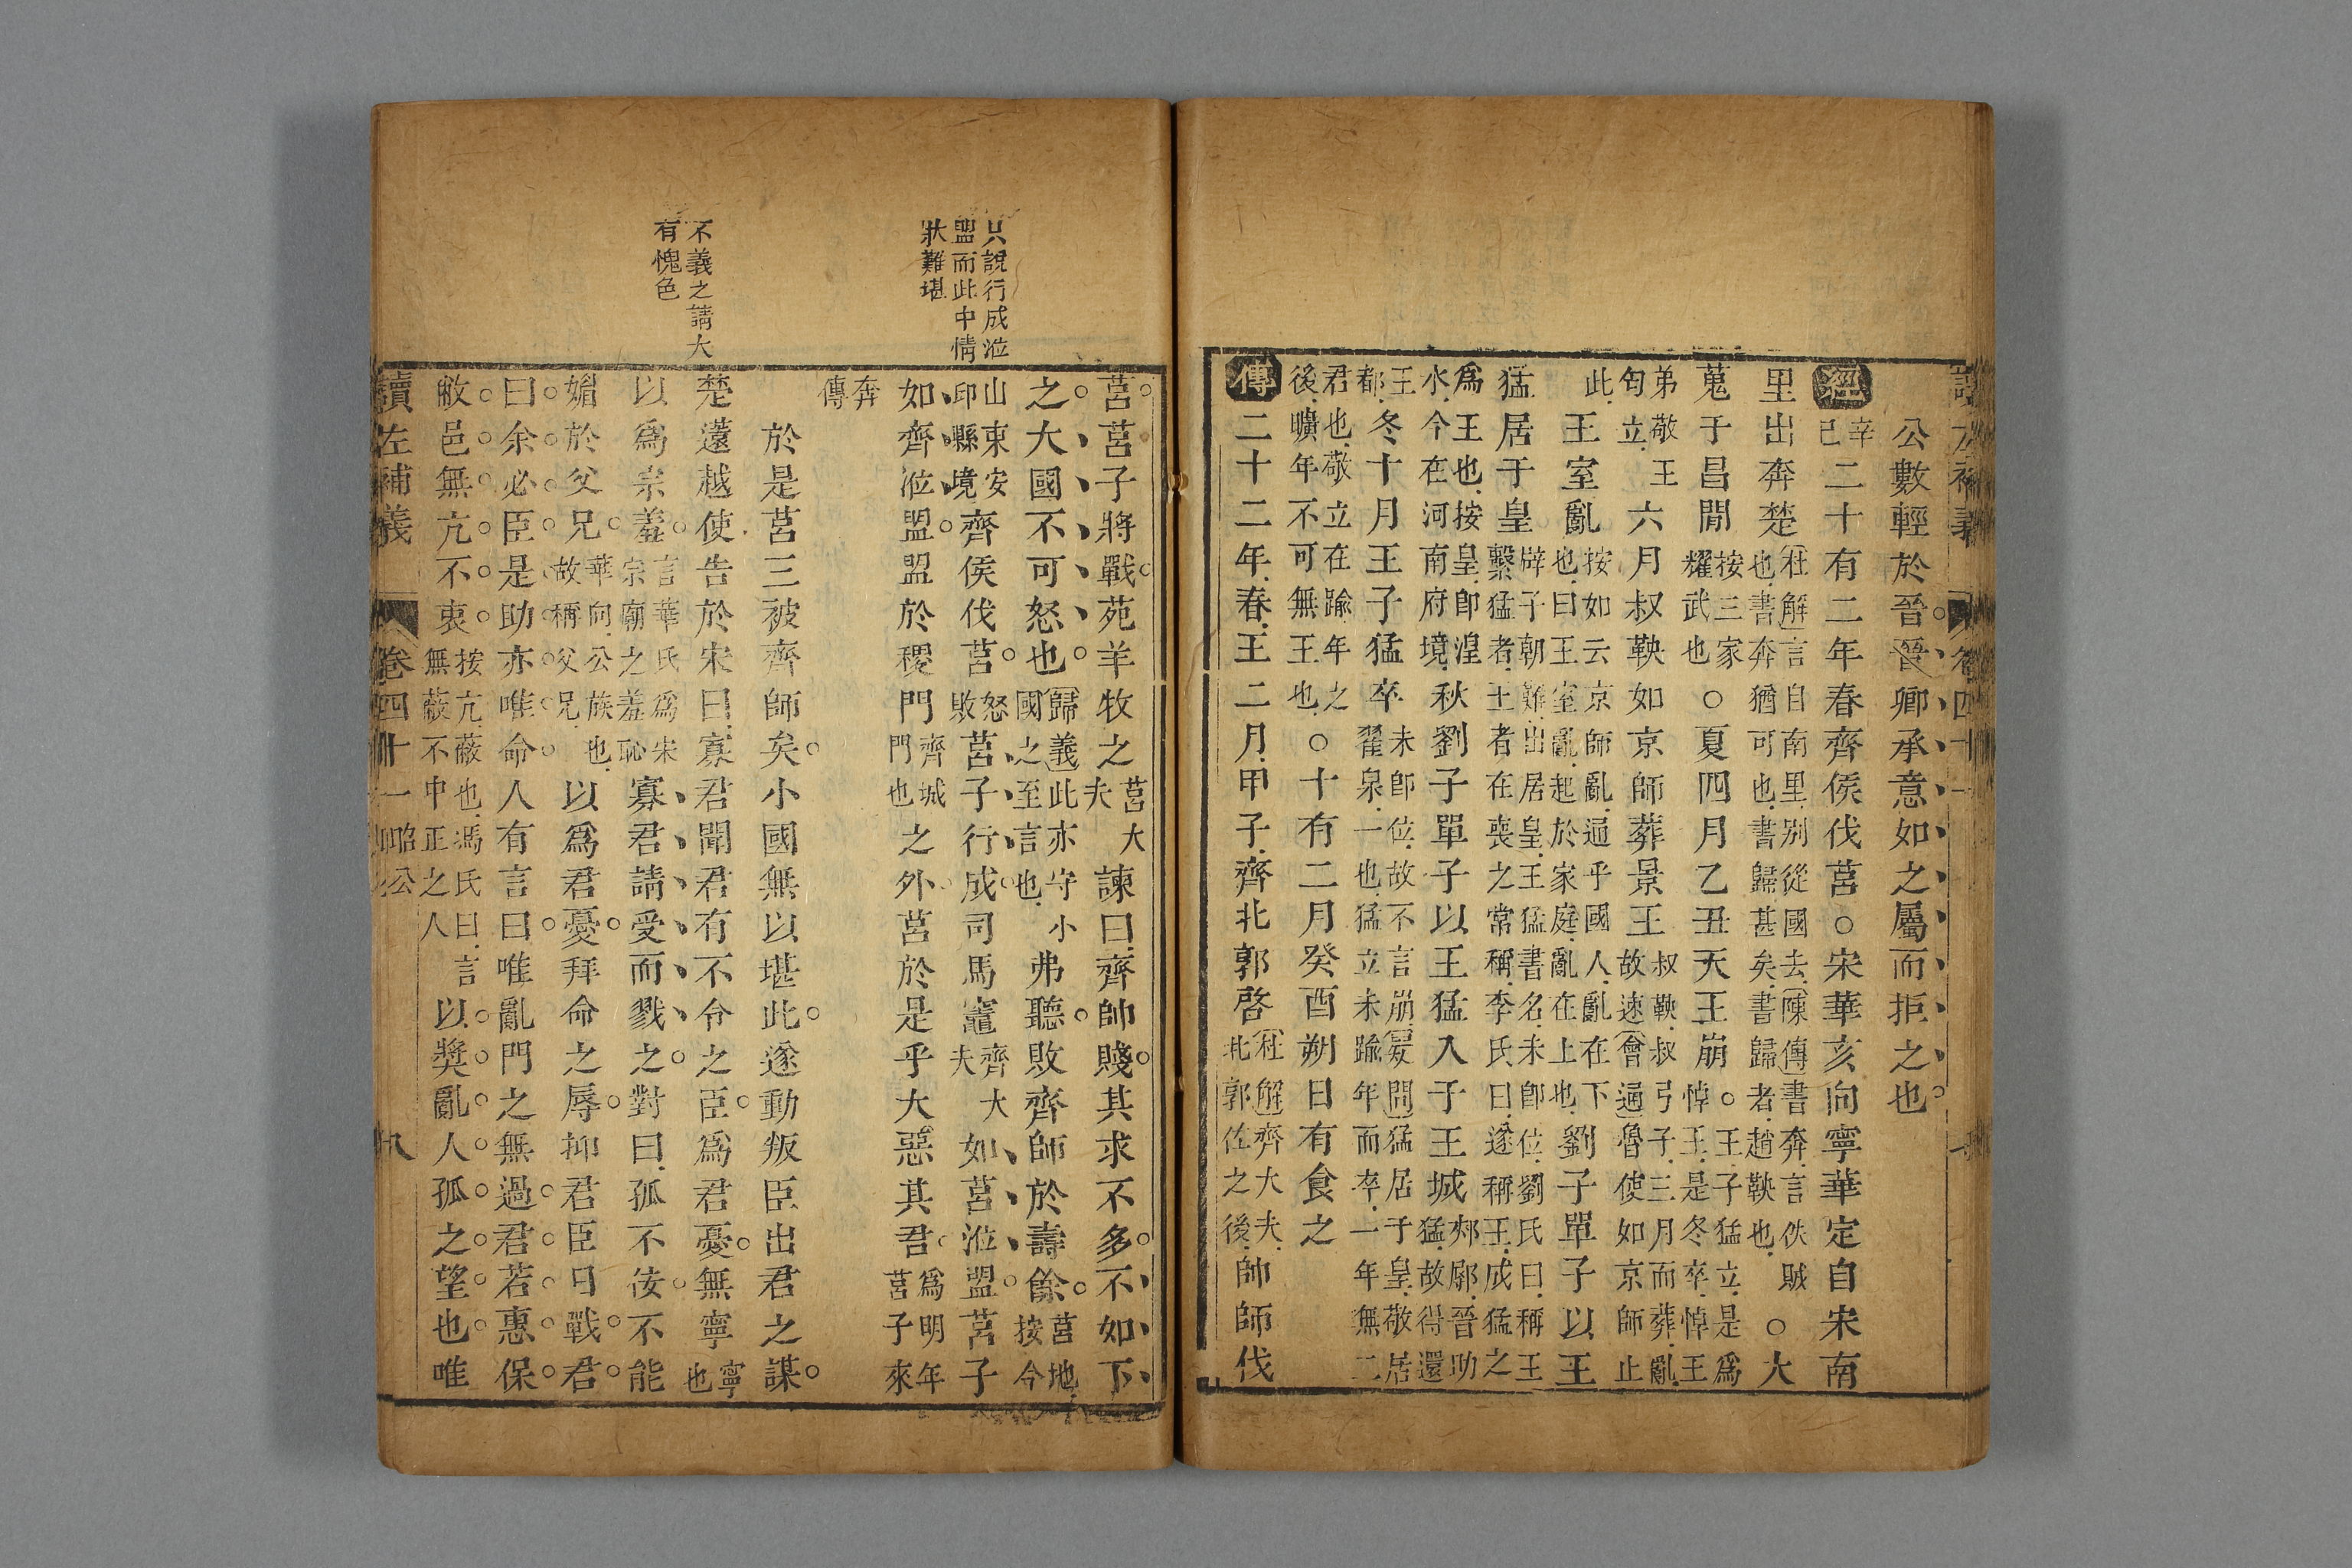 公數輕於晉晉卿承意如之屬而拒之也
經
辛
己
二十有二年春齊侯伐莒○宋華亥向寧華定自宋南
里出奔楚
杜解言自南里別從國去陳傳書奔言佚賊
也書奔猶可也書歸甚矣書歸者趙鞅也
○大
蒐于昌閒
按三家
耀武也
○夏四月乙丑天王崩
王子猛立是爲
悼王是冬卒悼王
弟敬王
匄立
六月叔鞅如京師葬景王
叔鞅叔弓子三月而葬亂
故速會通魯使如京師止
此
王室亂
按如云京師亂逼乎國人亂在下
也曰王室亂起於家庭亂在上也
劉子單子以王
猛居于皇
辟子朝難出居皇王猛書名未卽位劉氏曰稱王
繫猛者王者在喪之常稱李氏曰遂稱王成猛之
爲王也按皇卽湟
水今在河南府境
秋劉子單子以王猛入于王城
郟鄏晉助
猛故得還
王
都
冬十月王子猛卒
未卽位故不言崩愛問猛居于皇敬居
翟泉一也猛立未踰年而卒一年無二
君也敬立在踰年之
後曠年不可無王也
○十有二月癸酉朔日有食之
傳
二十二年春王二月甲子齊北郭啓
杜解齊大夫
北郭佐之後
帥師伐
莒莒子將戰苑羊牧之
莒大
夫
諫曰齊帥賤其求不多不如下
之大國不可怒也
歸義此亦守小
國之至言也
弗聽敗齊師於壽餘
莒地
按今
山東安
邱縣境
齊侯伐莒
怒
敗
莒子行成司馬竈
齊大
夫
如莒涖盟莒子
如齊涖盟盟於稷門
齊城
門也
之外莒於是乎大惡其君
爲明年
莒子來
奔
傳
於是莒三被齊師矣小國無以堪此遂動叛臣出君之謀
楚薳越使告於宋曰寡君聞君有不令之臣爲君憂無寧
寧
也
以爲宗羞
言華氏爲宋
宗廟之羞恥
寡君請受而戮之對曰孤不佞不能
媚於父兄
華向公族也
故稱父兄
以爲君憂拜命之辱抑君臣日戰君
曰余必臣是助亦唯命人有言曰唯亂門之無過君若惠保
敝邑無亢不衷
按亢蔽也馮氏曰言
無蔽不中正之人
以奬亂人孤之望也唯
讀左補義
卷四十一
昭公
九
只說行成涖
盟而此中情
狀難堪
不義之請大
有愧色